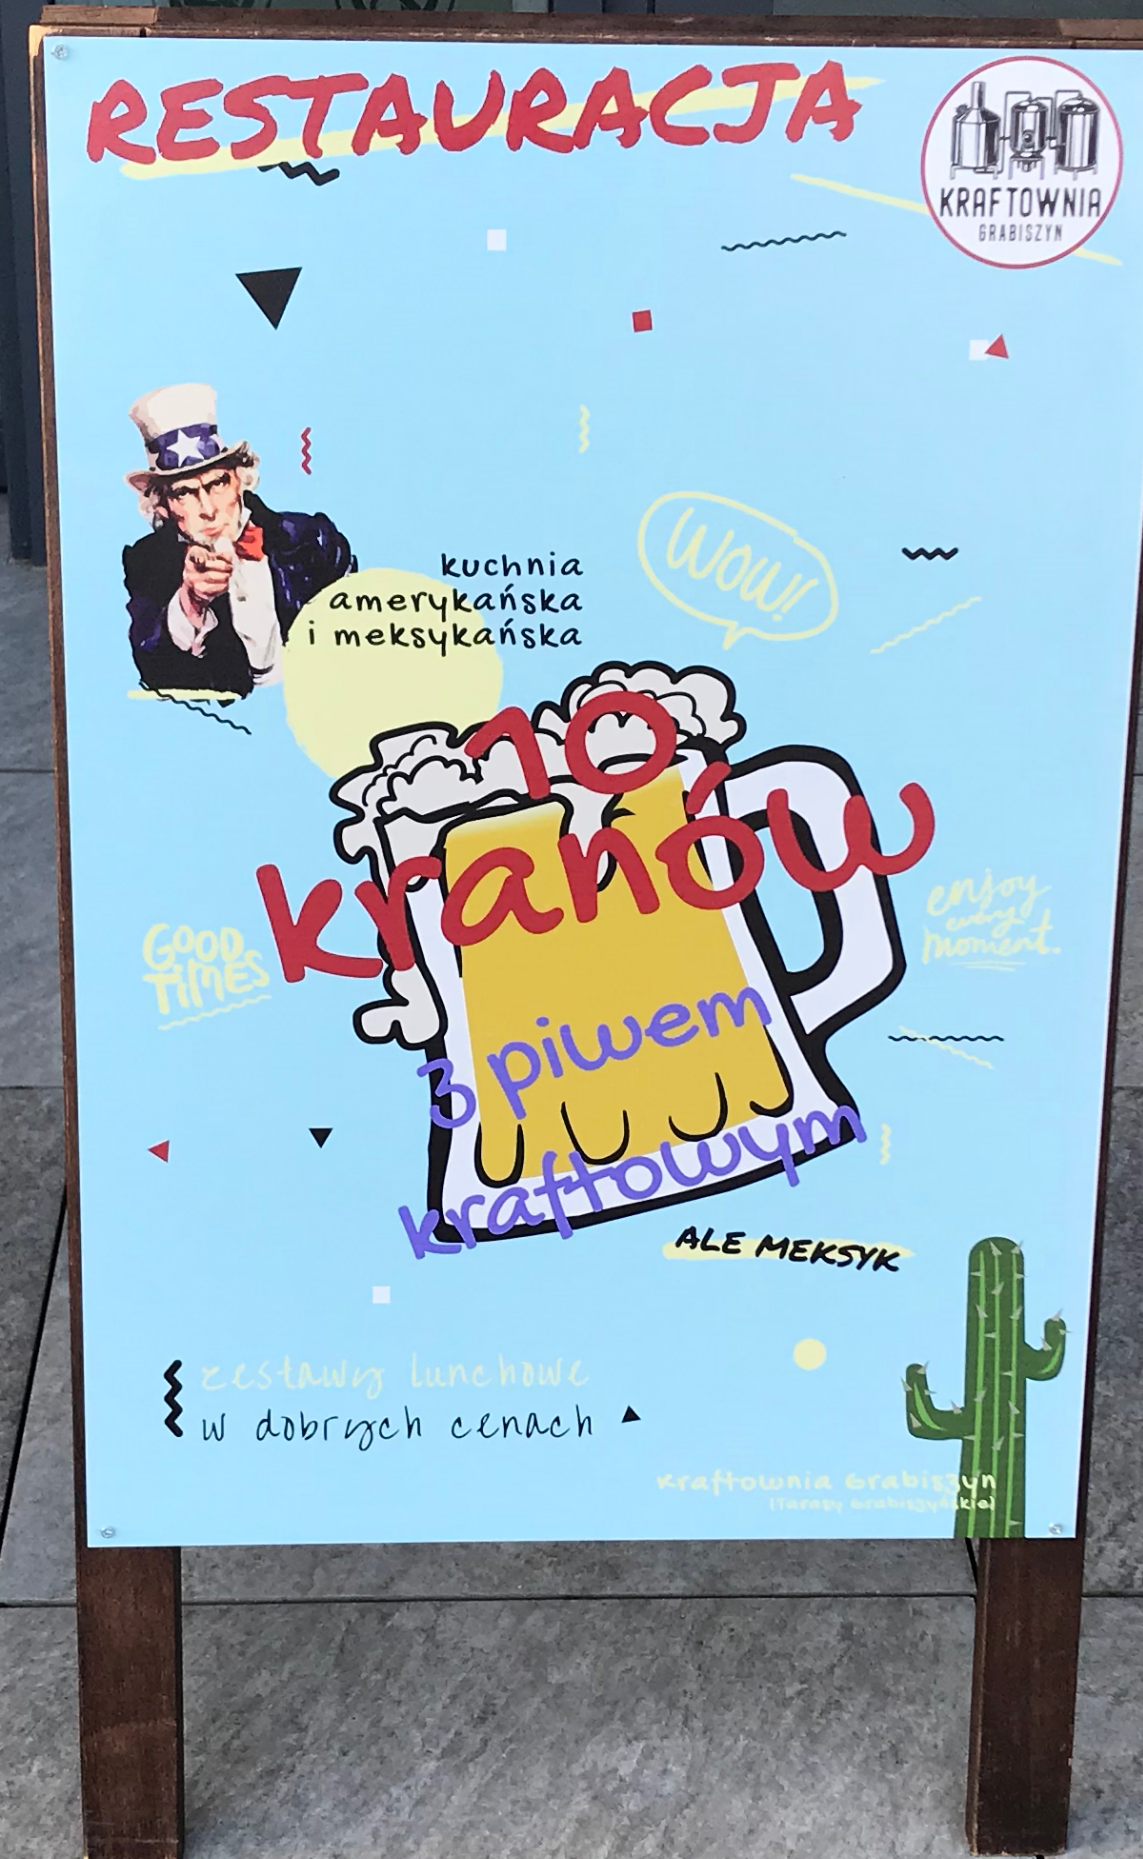 RESTAURACJA
KRAFTOWNIA
GRABISZYN
kuchnia
amerykańska
i meksykańska
WOW!
10
kranów
GOOD
TIMES
enjoy
every
moment.
z piwem
kraftowym
ALE MEKSYK
zestawy lunchowe
w dobrych cenach
Kraftownia Grabiszyn
(Tarasy Grabiszyńskie)